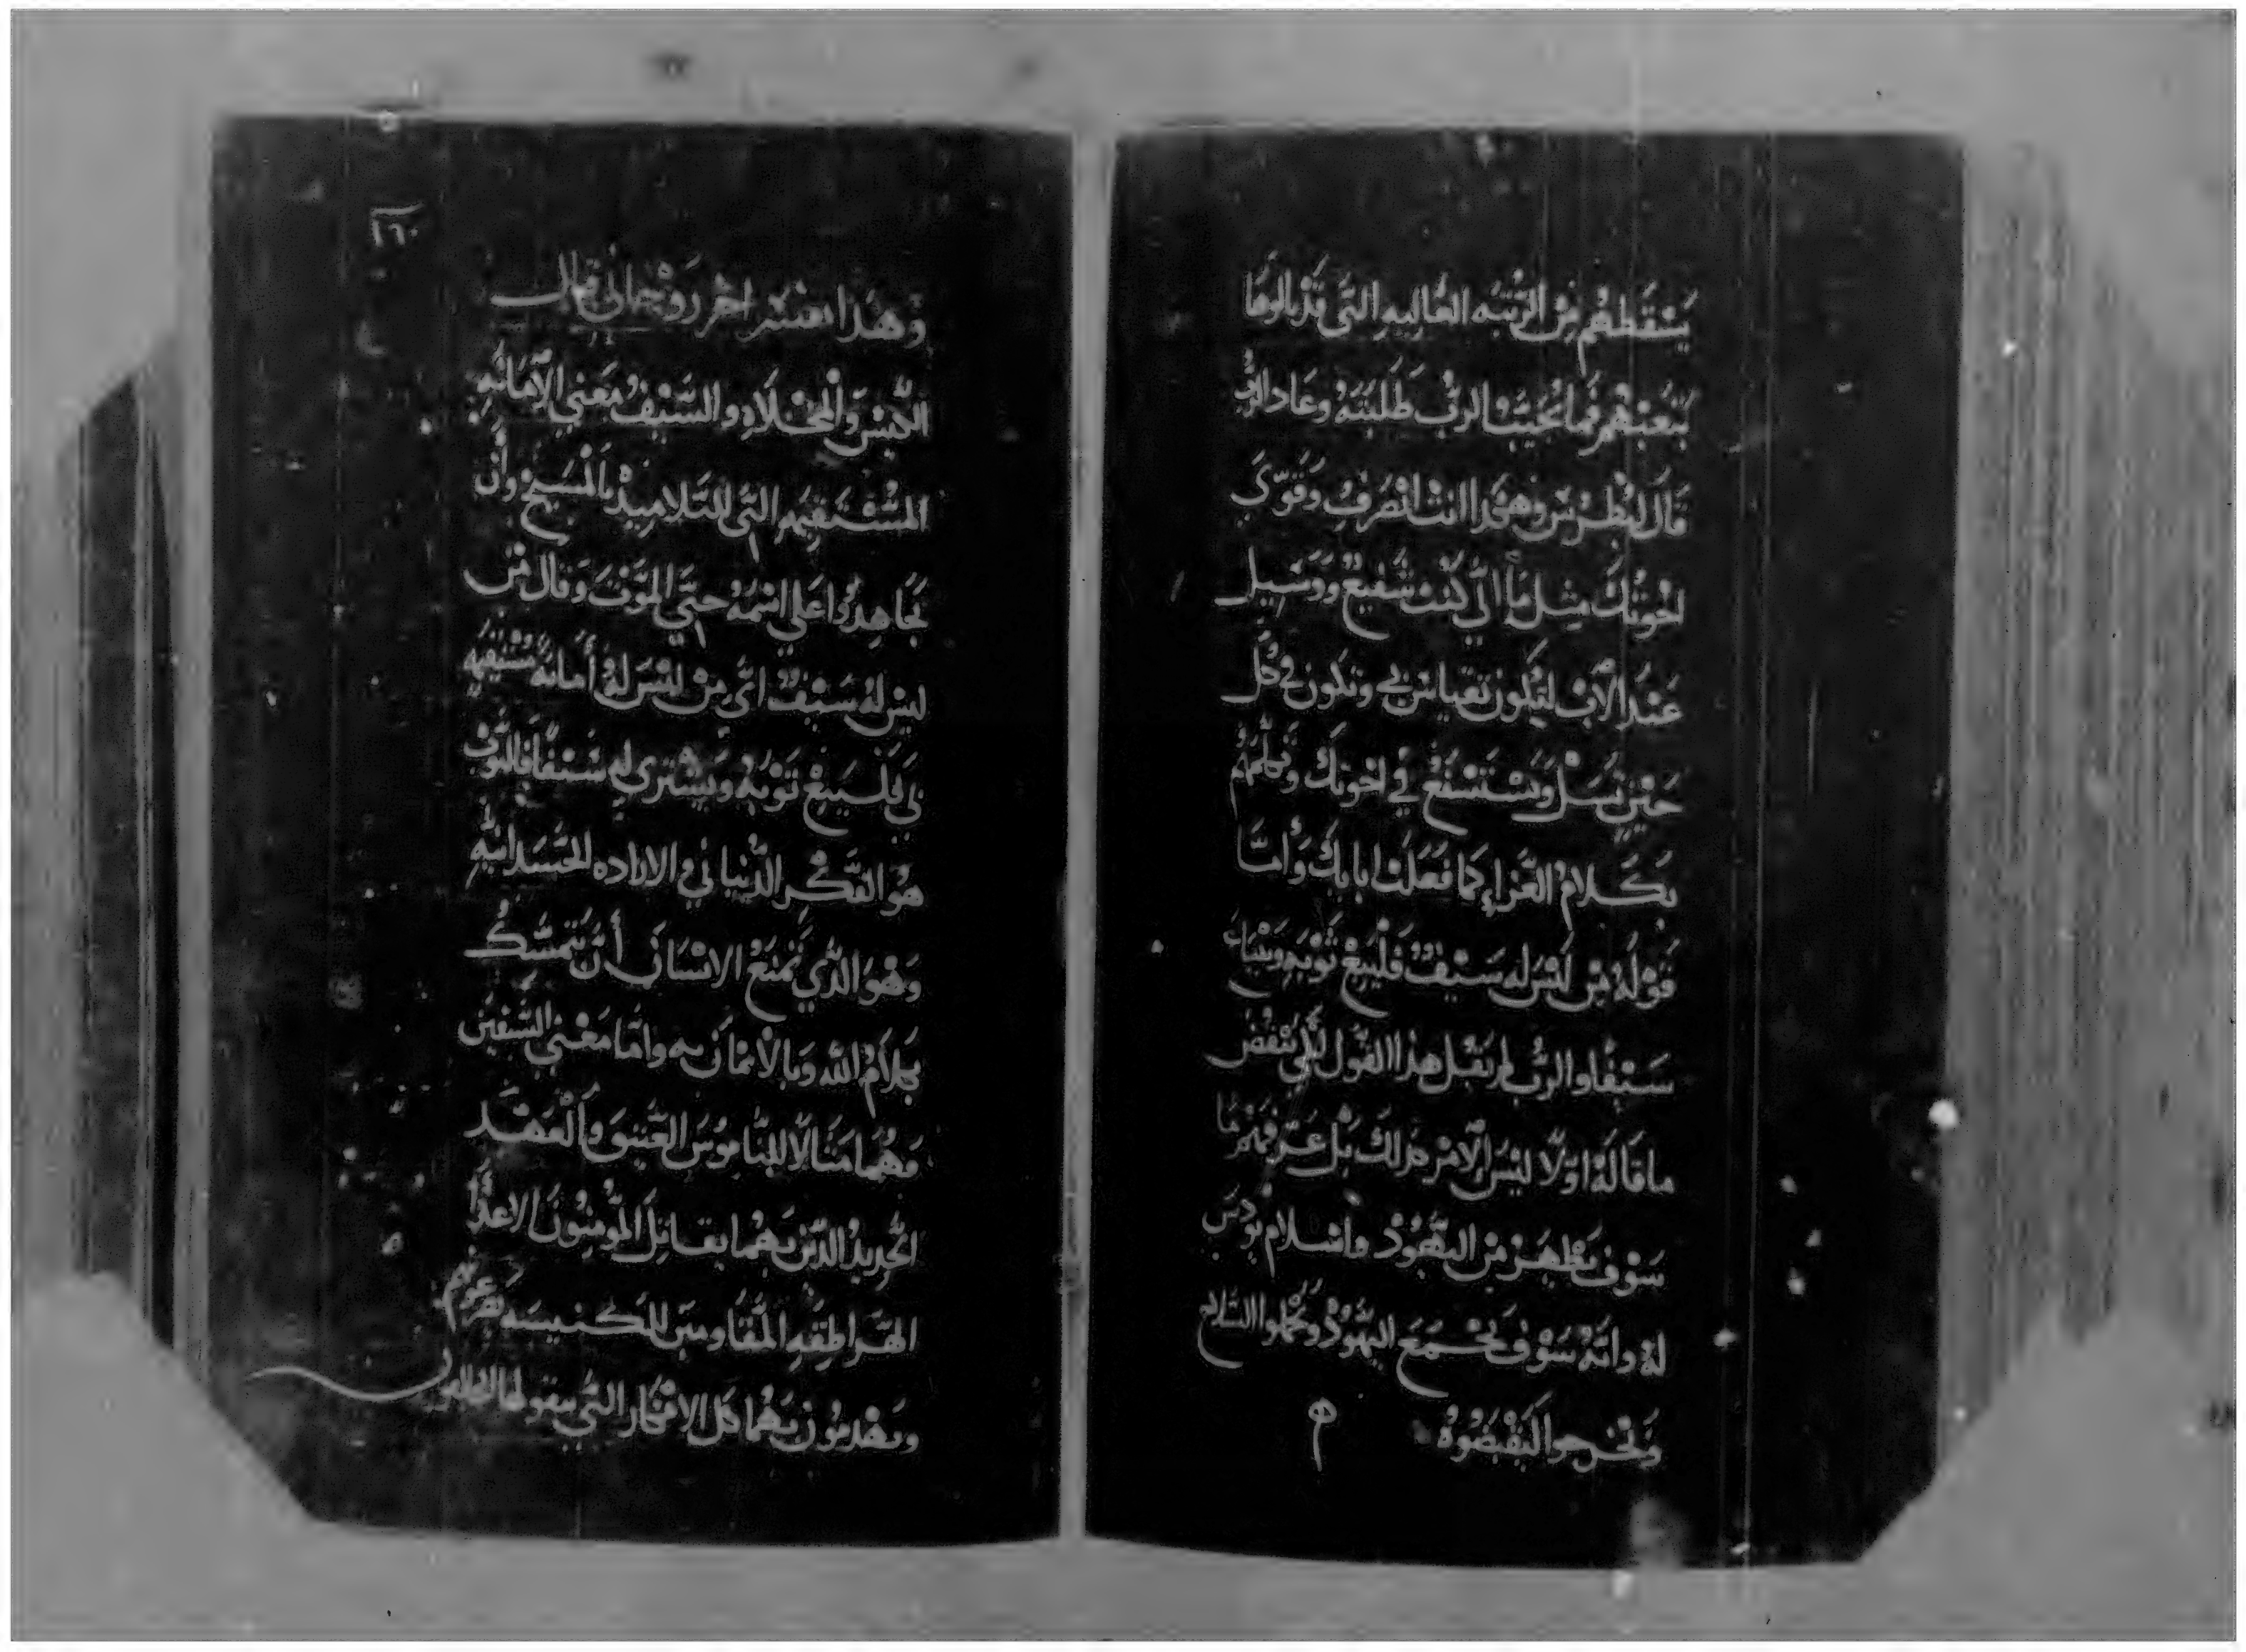 يسقطهم من الرتبه العاليه التي قد نالوها
بتعبثهم فما يجيب الرب طلبته وعاد الرب
قال لبطرس وهكذا انت انصرف وقوّي
اخوتك مثل ما اني كنت شفيع ووسيل
عند الآب ليكون تقياس بي وتكون في كل
حين تسل وتستشفع في اخوتك وتكلمهم
بكلام العزاء كما فعلت انا بك وأمّا
قوله من ليس له سيف فليبيع ثوبه ويبتاع
سيفًا والرب لم يقبل هذا القول لكي ينقض
ما قاله اولًا ليس الامر كذلك بل عرفهم ما
سوف يظهر من اليهود واسلام يودس
له وانه سوف يجمع اليهود ويحملوا السلاح
ويخرجوا ليقبضوه
١٦٠
وهذا يفسر اخر روحاني قال
الكيس والمخلاه والسيف معني الأمانه
المستقيمه التي للتلاميذ بالمسيح وأن
يجاهدوا علي اسمه حتي الموت وقال من
ليس له سيف اي من ليس له أمانه مستقيمه
بي فليبيع ثوبه ويشتري له سيفًا فالثوب
هو التفكر الدنياني والاراده الجسدانيه
وهو الذي يمنع الانسان أن يتمسك
بكلام الله وبالايمان به وامّا معني السيفين
وهما مثالا للناموس العتيق والعهد
الجديد الذين بهما يقاتل المومنون الاعدا
الهراطقه المقاومين للكنيسه
ويهدمون بهما كل الافكار التي يقولها